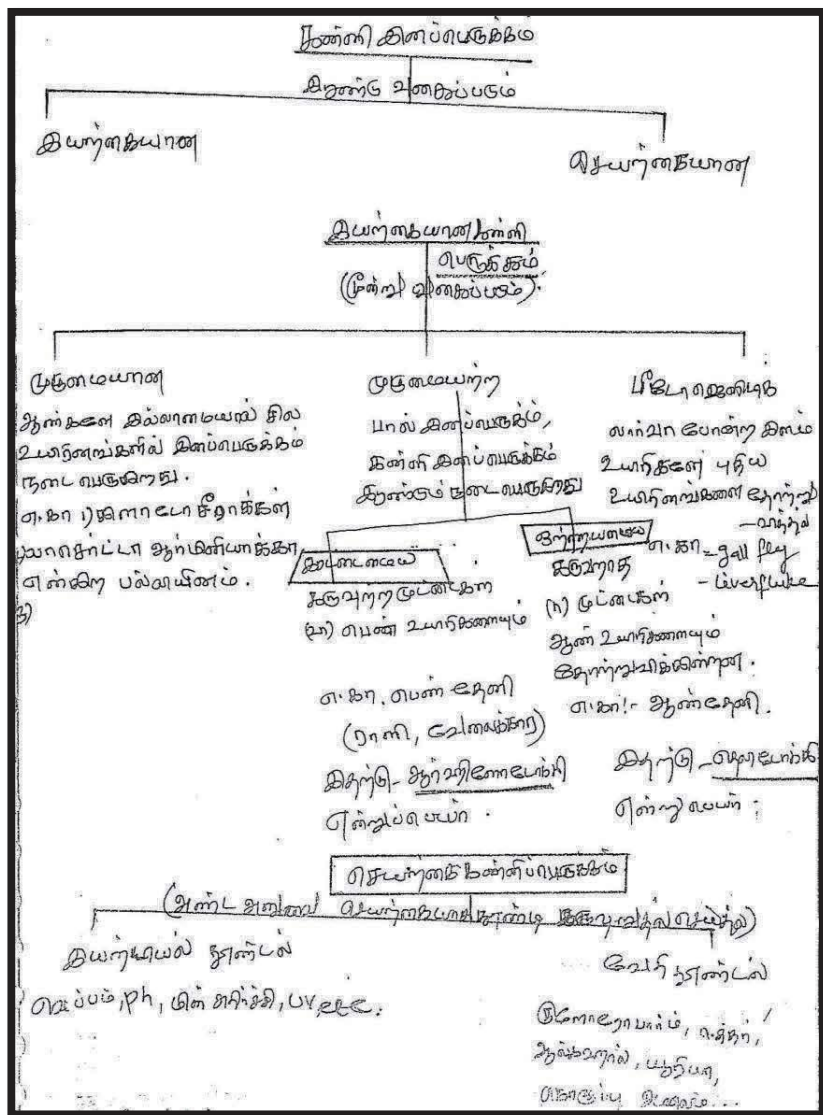 கன்னி இனப்பெருக்கம்
இரண்டு வகைப்படும்
இயற்கையான
செயற்கையான
இயற்கையான கன்னி
பெருக்கம்
(மூன்று வகைப்படும்).
முழுமையான
ஆண்களே இல்லாமையால் சில
உயிரினங்களில் இனப்பெருக்கம்
நடைபெறுகிறது.
எ.கா
ஆர்மினியாக்கா
என்கிற பல்லியினம்.
முழுமையற்ற
பால் இனப்பெருக்கம்,
கன்னி இனப்பெருக்கம்
இரண்டும் நடைபெறுகிறது
கருவுற்ற முட்டைகள்
பெண் உயிரிகளையும்
எ.கா. பெண் தேனி
(ராணி, வேலைக்கார)
இதற்கு -
என்றுப்பெயர்.
கருவுறாத
(n) முட்டைகள்
ஆண் உயிரிகளையும்
தோற்றுவிக்கின்றன.
எ.கா:- ஆண்தேனி.
இதற்கு -
என்று பெயர்.
லார்வா போன்ற இளம்
உயிரிகளே புதிய
உயிரினங்களை தோற்று
எ.கா - gall fly
- Liverfluke
செயற்கை கன்னிப்பெருக்கம்
(அண்ட அணுவை செயற்கையாக தூண்டி கருவுறுதல் செய்தல்)
இயற்பியல் தூண்டல்
வெப்பம், ph, மின் அதிர்ச்சி, UV, etc.
வேதி தூண்டல்
குளோரோபார்ம், ஈத்தர்,
ஆல்கஹால், யூரியா,
கொழுப்பு அமிலம்...